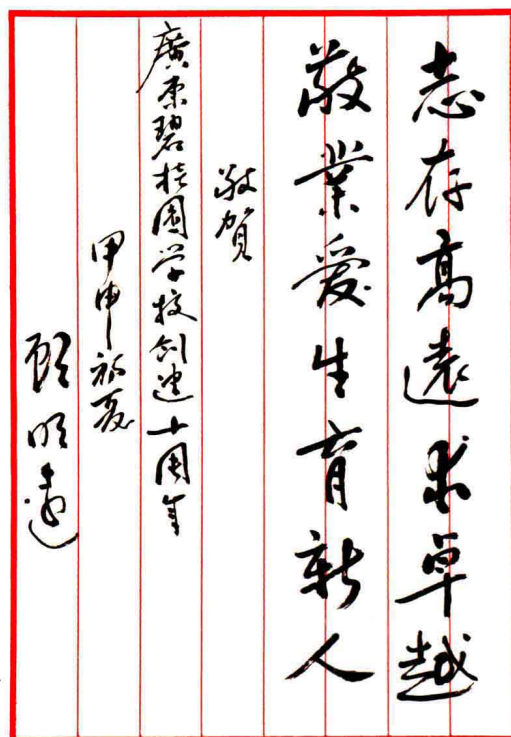 志存高遠求卓越
敬業爱生育新人
敬賀
廣東碧桂園学校創建十周年
甲申初夏
顾明遠